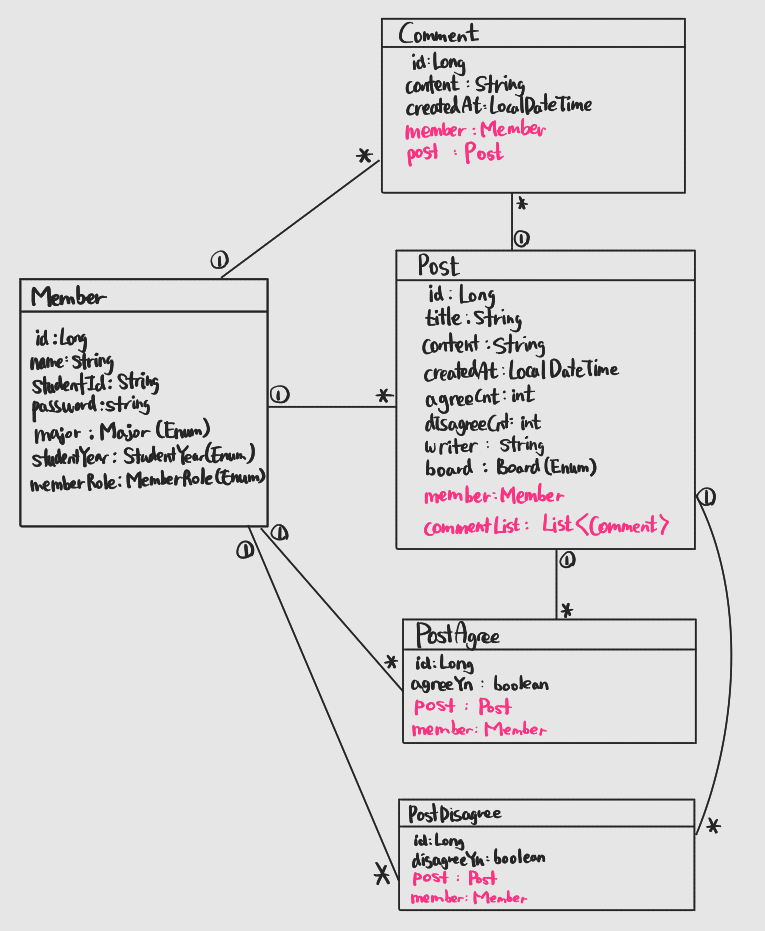 Comment
id:Long
content : String
createdAt:LocalDateTime
member : Member
post : Post
*
①
*
①
Member
id:Long
name:String
studentId: String
password:string
major : Major (Enum)
studentYear: StudentYear(Enum)
memberRole: MemberRole(Enum)
①
*
Post
id: Long
title: String
content: String
createdAt:LocalDateTime
agreeCnt: int
disagreeCnt: int
writer : String
board : Board(Enum)
member:Member
commentList: List<Comment>
①
①
①
①
*
*
PostAgree
id:Long
agreeYn : boolean
post : Post
member: Member
PostDisagree
id:Long
disagreeYn:boolean
post : Post
member: Member
*
*